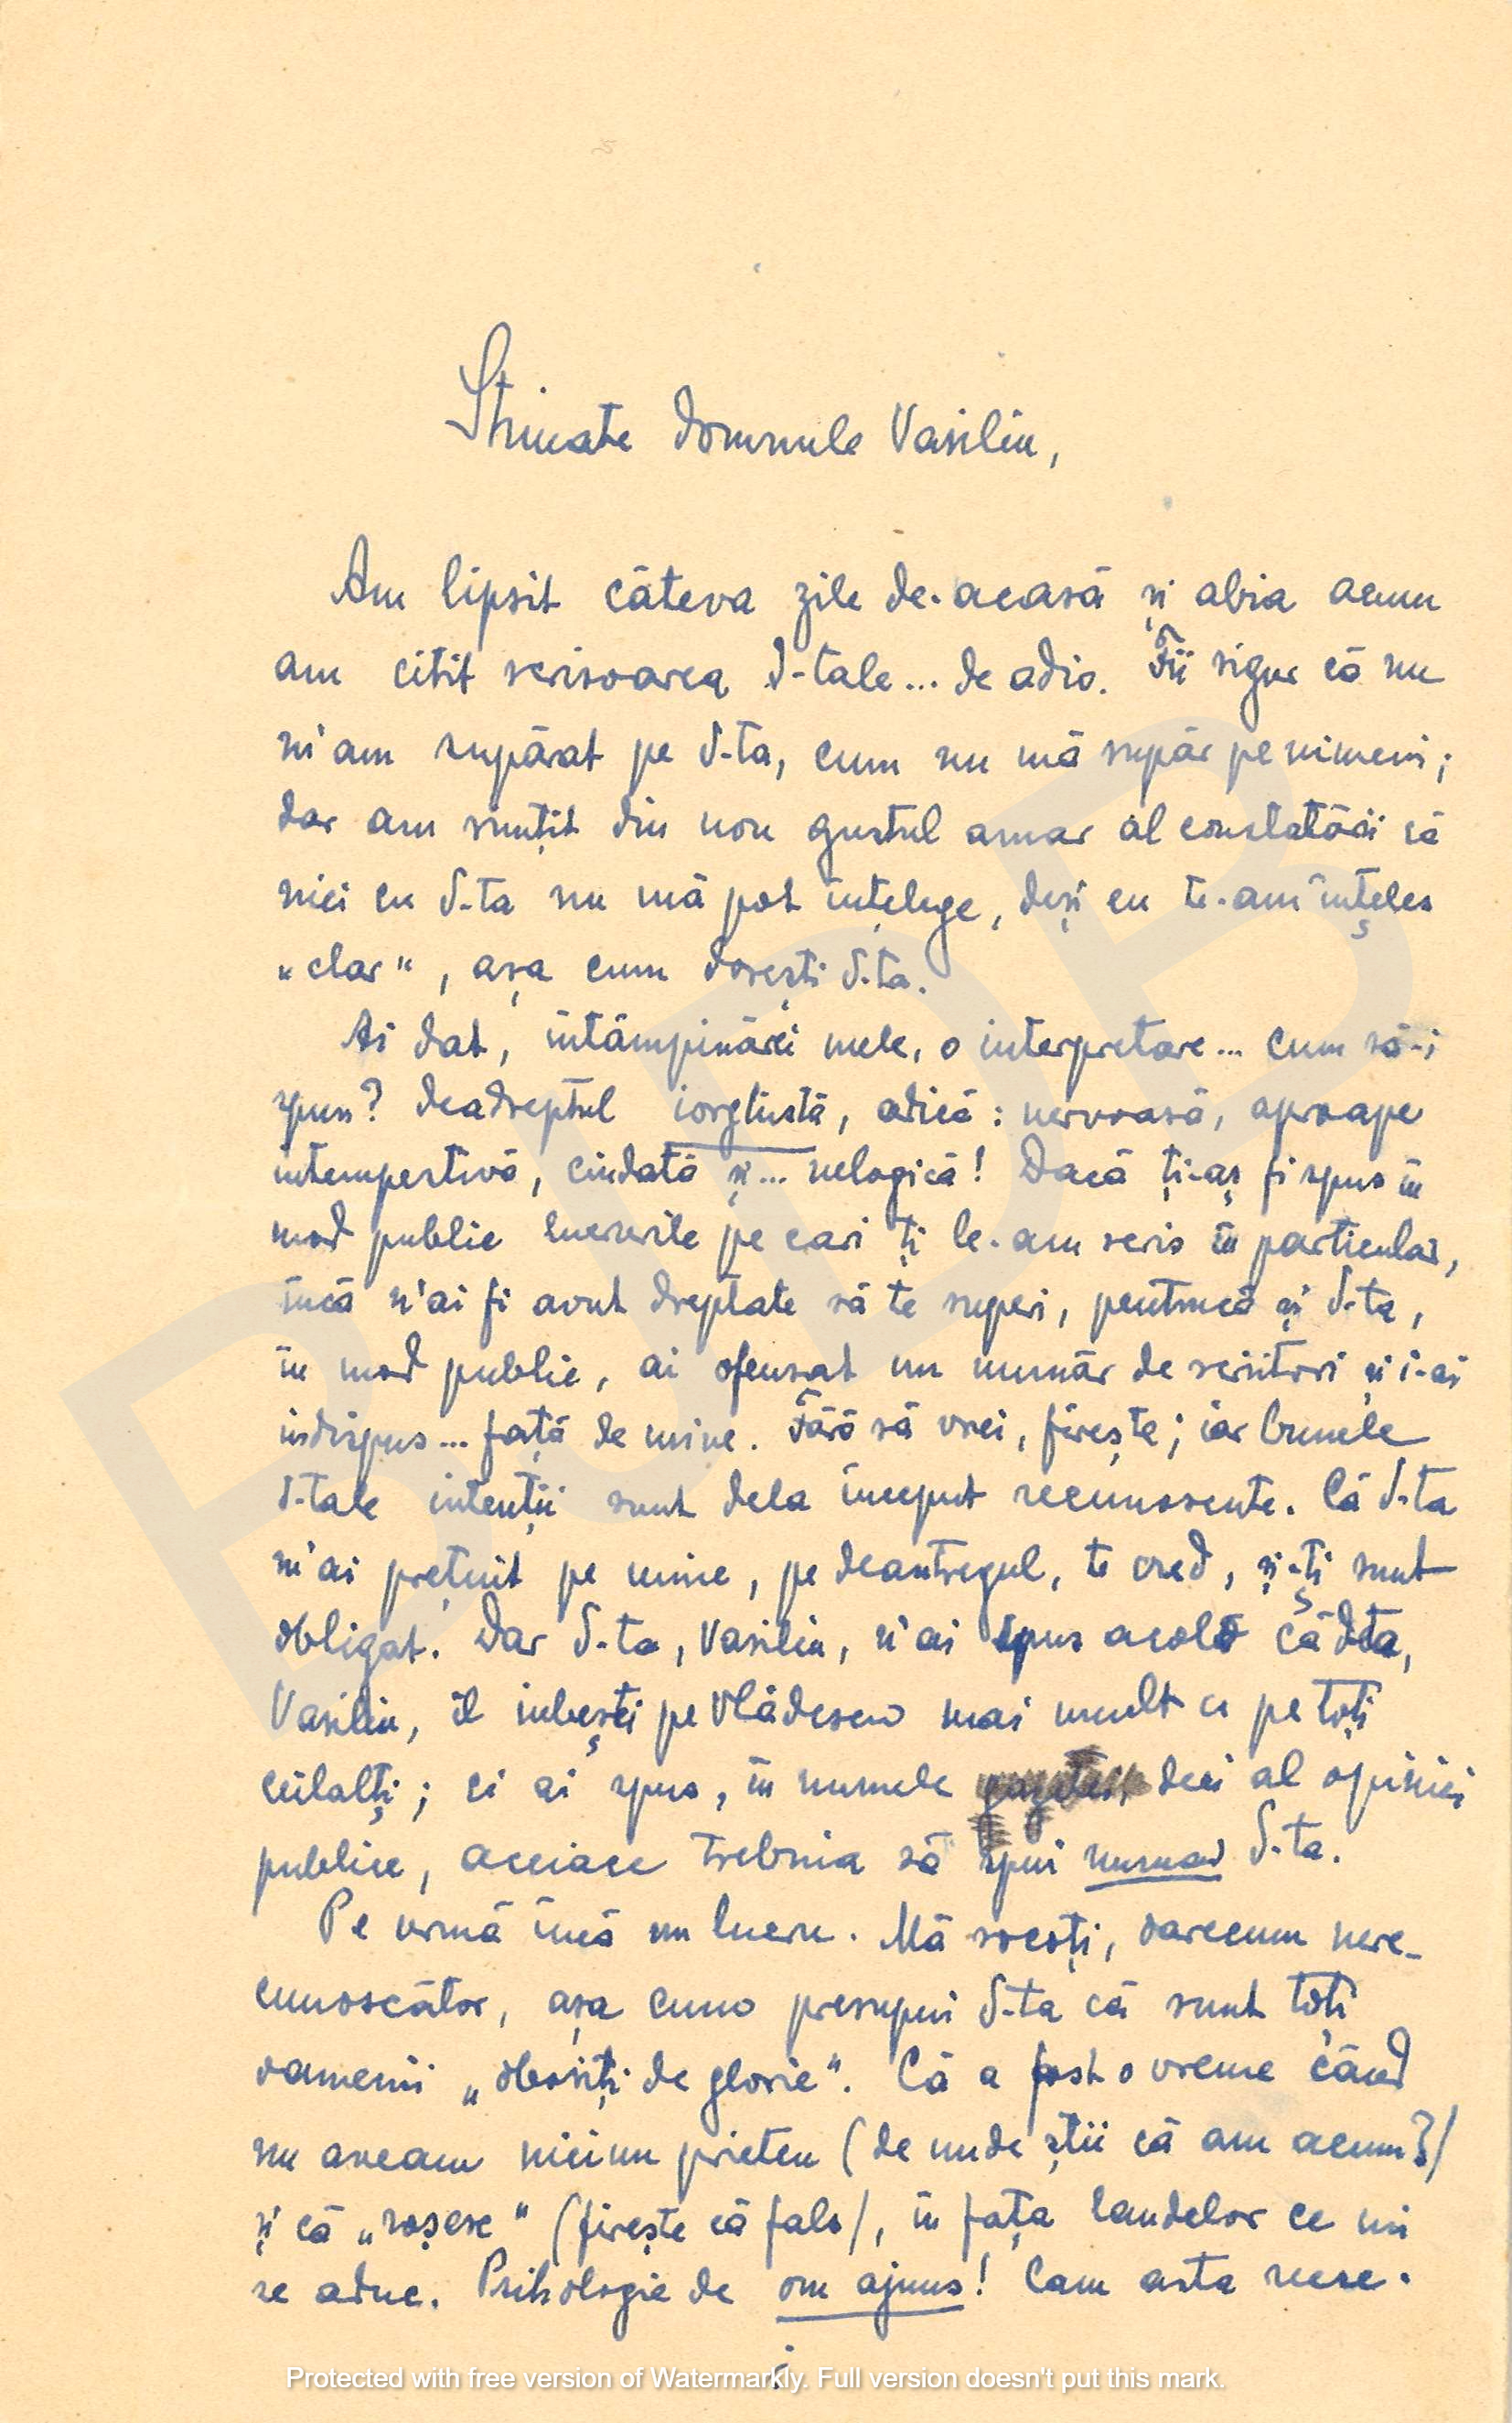 Stimate domnule Vasiliu,
Am lipsit câteva zile de-acasă și abia acum
am citit scrisoarea d-tale... de adio. Fii sigur că nu
m'am supărat pe d-ta, cum nu mă supăr pe nimeni;
dar am simțit din nou gustul amar al constatării că
nici cu d-ta nu mă pot înțelege, deși eu te-am înțeles
„clar", așa cum dorești d-ta.
Ai dat, întâmpinării mele, o interpretare... cum să-i
spun? deadreptul iorglistă, adică: nervoasă, aproape
intempestivă, ciudată și... nelogică! Dacă ți-aș fi spus în
mod public lucrurile pe cari ți le-am scris în particular,
încă n'ai fi avut dreptate să te superi, pentrucă și d-ta,
în mod public, ai ofensat un număr de scriitori și i-ai
indispus... față de mine. Fără să vrei, firește; iar bunele
d-tale intenții sunt dela început recunoscute. Că d-ta
m'ai prețuit pe mine, pe deantregul, te cred, și-ți sunt
obligat. Dar d-ta, Vasiliu, n'ai spus acolo că dta,
Vasiliu, îl iubești pe Vlădescu mai mult ca pe toți
ceilalți; ci ai spus, în numele deci al opiniei
publice, aceiace trebuia să spui numai d-ta.
Pe urmă încă un lucru. Mă socoți, oarecum nere-
cunoscător, așa cum presupui d-ta că sunt toți
oamenii „obosiți de glorie". Că a fost o vreme când
nu aveam niciun prieten (de unde știi că am acum?)
și că „roșesc" (firește că fals), în fața laudelor ce mi
se aduc. Psihologie de om ajuns! Cam asta reese.
Protected with free version of Watermarkly. Full version doesn't put this mark.